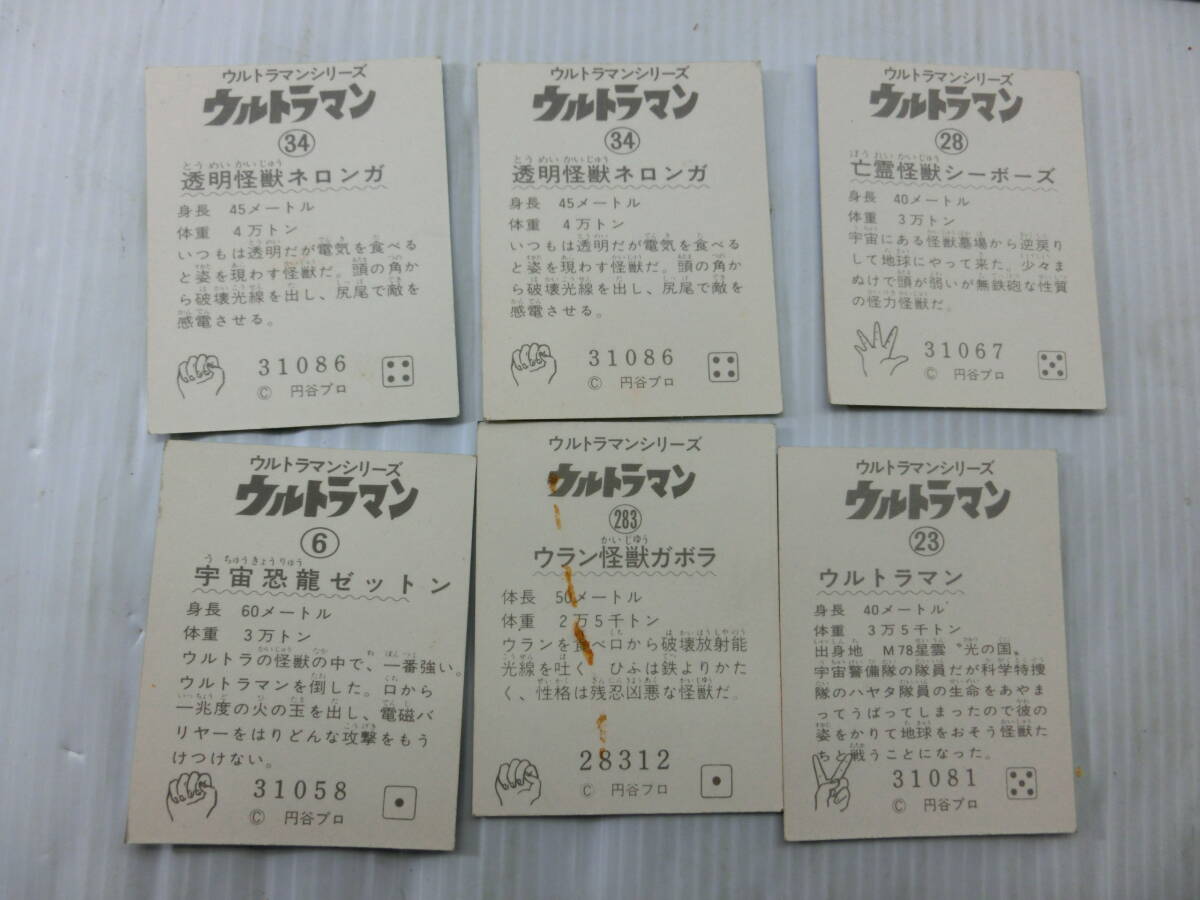 ウルトラマンシリーズ
ウルトラマン
34
とうめいかいじゅう
透明怪獣ネロンガ
身長 45メートル
体重 4万トン
いつもは透明だが電気を食べる
と姿を現わす怪獣だ。頭の角か
ら破壊光線を出し、尻尾で敵を
感電させる。
31086
© 円谷プロ
ウルトラマンシリーズ
ウルトラマン
34
とうめいかいじゅう
透明怪獣ネロンガ
身長 45メートル
体重 4万トン
いつもは透明だが電気を食べる
と姿を現わす怪獣だ。頭の角か
ら破壊光線を出し、尻尾で敵を
感電させる。
31086
© 円谷プロ
ウルトラマンシリーズ
ウルトラマン
28
ぼうれいかいじゅう
亡霊怪獣シーボーズ
身長 40メートル
体重 3万トン
宇宙にある怪獣墓場から逆戻り
して地球にやって来た。少々ま
ぬけで頭が弱いが無鉄砲な性質
の怪力怪獣だ。
31067
© 円谷プロ
ウルトラマンシリーズ
ウルトラマン
6
うちゅうきょうりゅう
宇宙恐龍ゼットン
身長 60メートル
体重 3万トン
ウルトラの怪獣の中で、一番強い。
ウルトラマンを倒した。口から
一兆度の火の玉を出し、電磁バ
リヤーをはりどんな攻撃をもう
けつけない。
31058
© 円谷プロ
ウルトラマンシリーズ
ウルトラマン
283
かいじゅう
ウラン怪獣ガボラ
体長 50メートル
体重 2万5千トン
ウランを食べ口から破壊放射能
光線を吐く。ひふは鉄よりかた
く、性格は残忍凶悪な怪獣だ。
28312
© 円谷プロ
ウルトラマンシリーズ
ウルトラマン
23
ウルトラマン
身長 40メートル
体重 3万5千トン
出身地 M78星雲〝光の国〟
宇宙警備隊の隊員だが科学特捜
隊のハヤタ隊員の生命をあやま
ってうばってしまったので彼の
姿をかりて地球をおそう怪獣た
ちと戦うことになった。
31081
© 円谷プロ